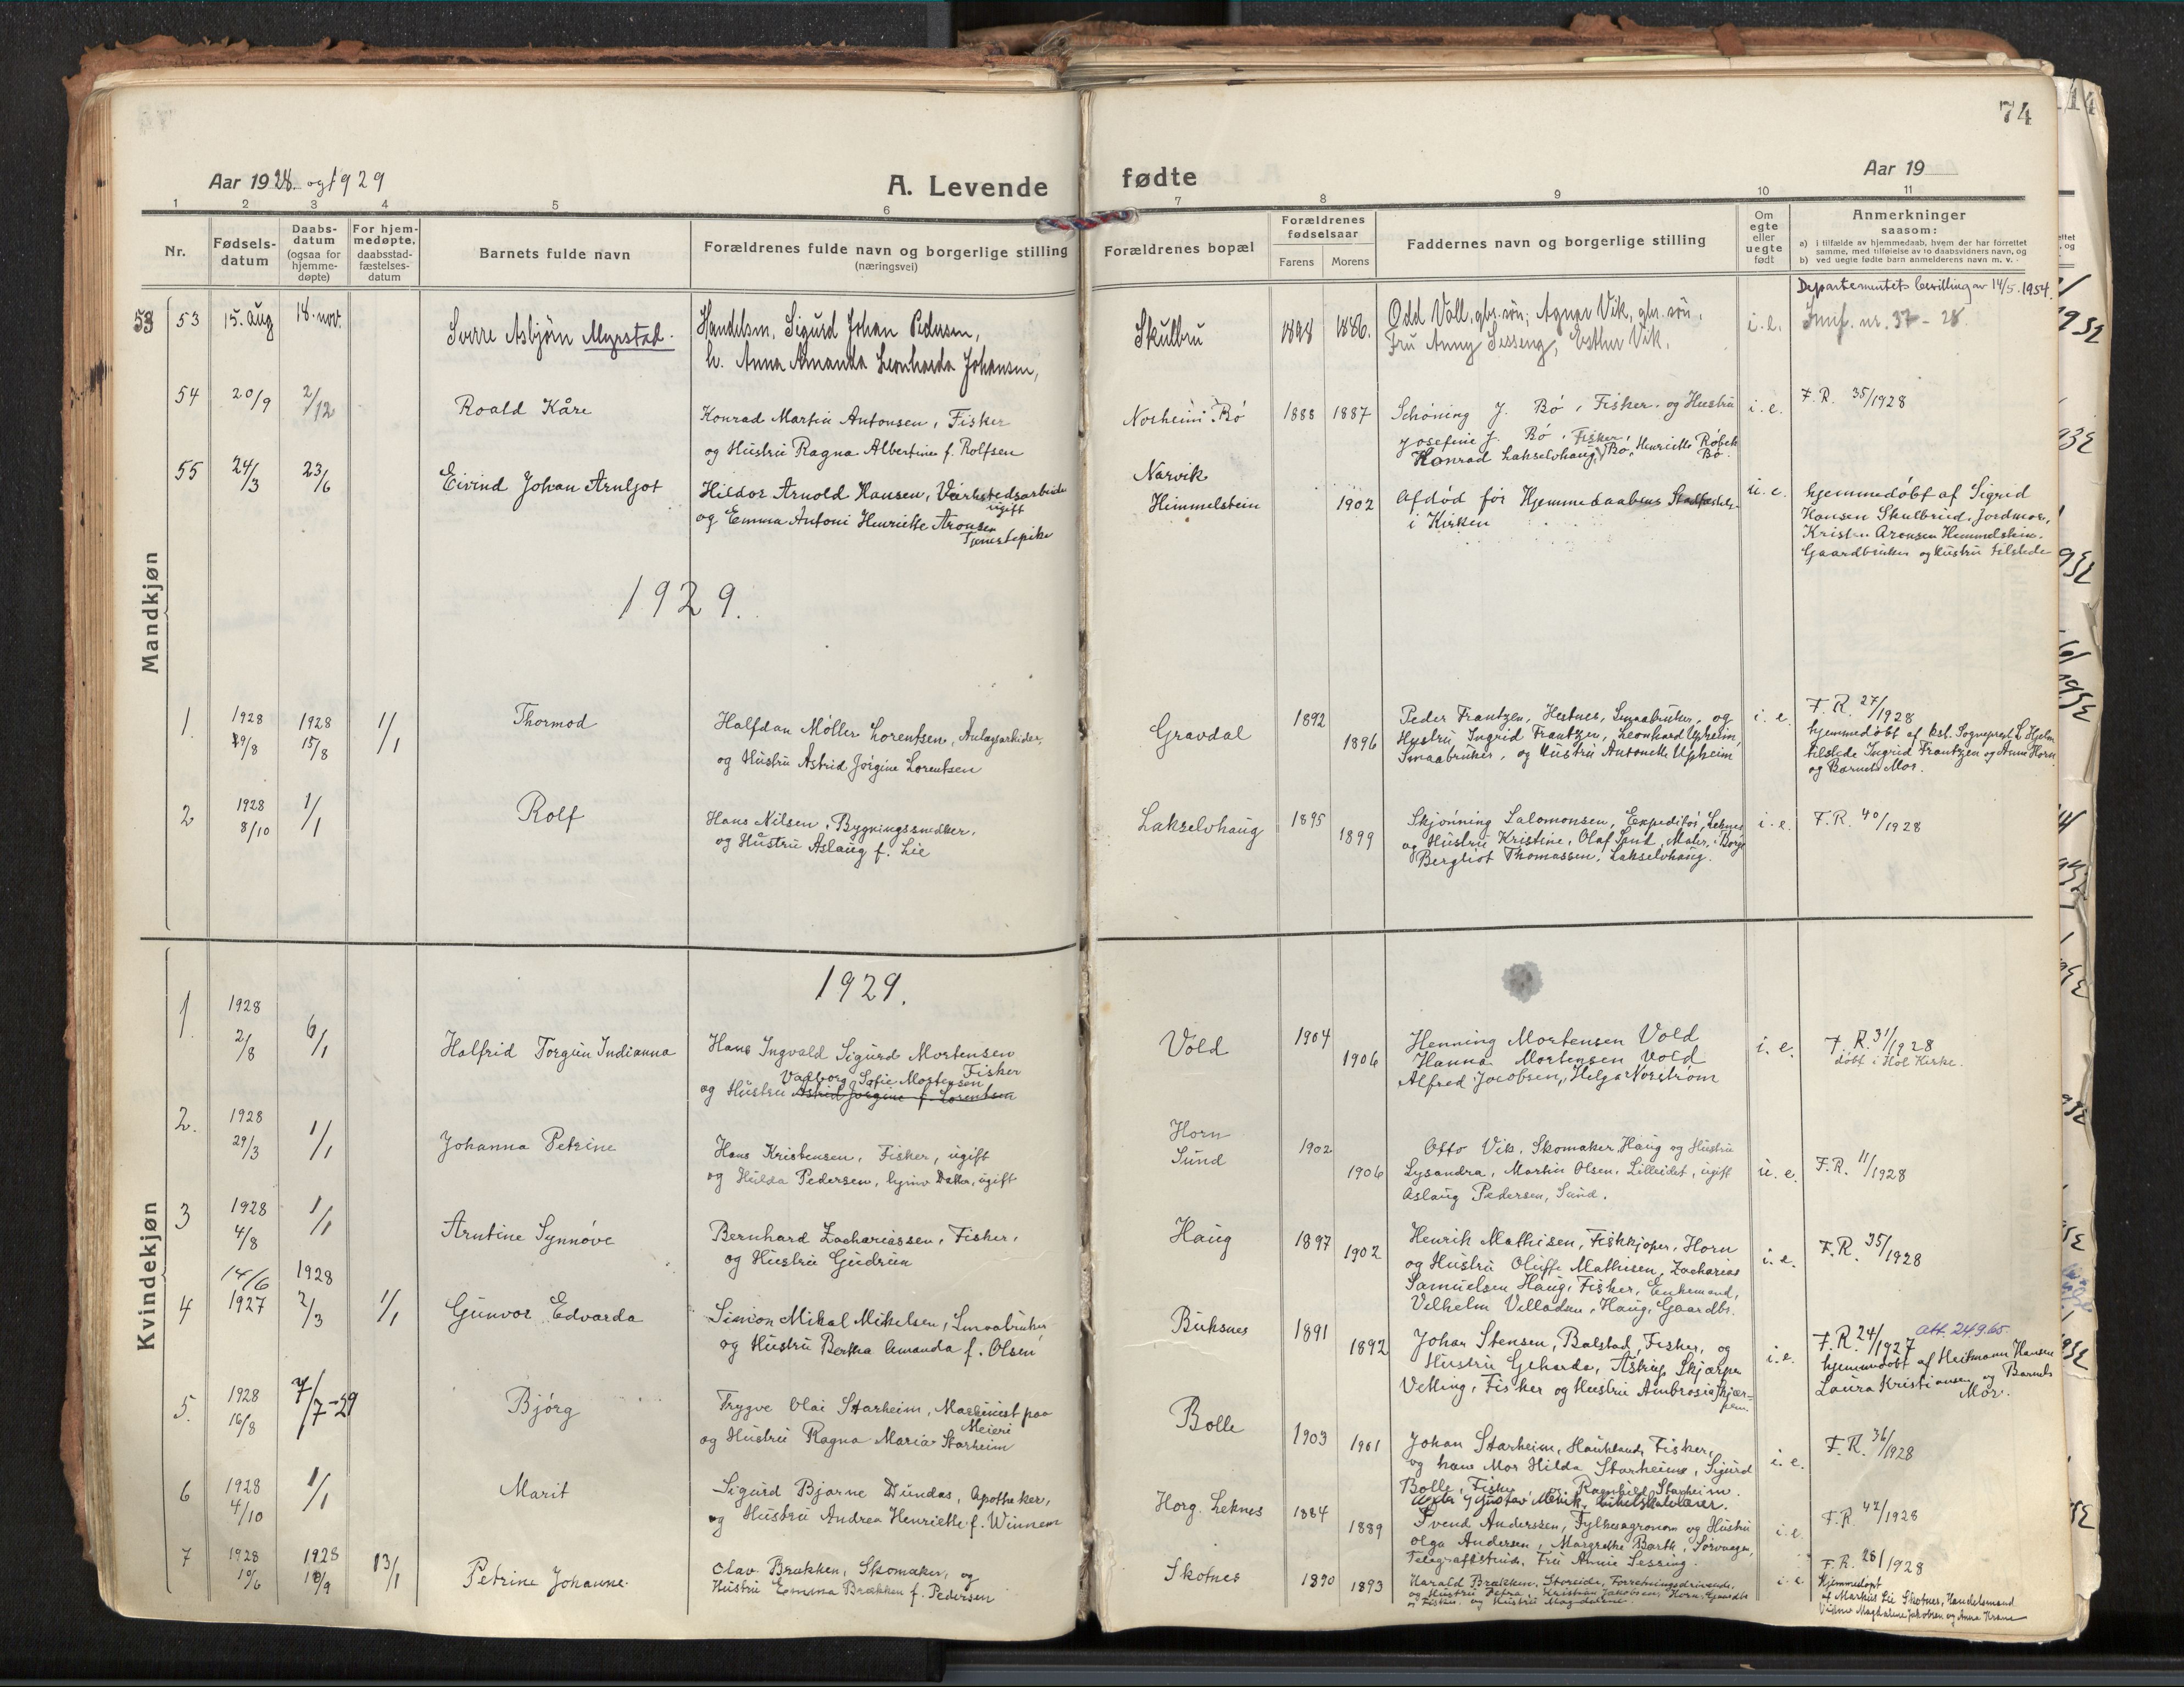 74
Aar 1928. og 1929
A. Levende fødte
Aar 19
1 2 3 4 5 6 7 8 9 10 11
Nr.
Fødsels-
datum
Daabs-
datum
(ogsaa for
hjemme-
døpte)
For hjem-
medøpte,
daabsstad-
fæstelses-
datum
Barnets fulde navn
Forældrenes fulde navn og borgerlige stilling
(næringsvei)
Forældrenes bopæl
Forældrenes
fødselsaar
Farens Morens
Faddernes navn og borgerlige stilling
Om
egte
eller
uegte
født
Anmerkninger
saasom:
a) i tilfælde av hjemmedaab, hvem der har forrettet
samme, med tilføielse av to daabsvidners navn, og
b) ved uegte fødte barn anmelderens navn m. v.
Mandkjøn
53 53 15. aug 18. nov.
Sverre Asbjørn Myrstad.
Handelsm. Sigurd Johan Pedersen,
h. Anna Amanda Leonharda Johansen,
Skulbru
1898 1886.
Odd Voll, gbr. søn; Agnar Vik, gbr. søn,
Fru Anny Sesseng, Esther Vik.
i. e.
Departementets bevilling av 14/5. 1954.
nr. 37 - 28.
54 20/9 2/12
Roald Kåre
Konrad Martin Antonsen, Fisker
og Hustru Ragna Albertine f. Rolfsen
Norheim Bø
1888 1887
Schøning J. Bø, Fisker og Hustru
Josefine J. Bø, Fisker,
Konrad Lakselvhaug, Bø, Henriette Røbek
Bø.
i. e.
F. R. 35/1928
55 24/3 23/6
Eivind Johan Arnljot
Hildor Arnold Hansen, Værkstedsarbeider
ugift
og Emma Antoni Henriette Aronsen
Tjenestepike
Narvik
Himmelstein
1902
Afdød før Hjemmedaabens Stadfæstelse
i Kirken
u. e.
hjemmedøbt af Sigrid
Hansen Skulbrud, Jordmor,
Kristen Aronsen Himmelstein.
Gaardbruker og Hustru tilstede
1929.
1. 1928 29/8 1928 15/8 1/1
Thormod
Halfdan Møller Lorentsen, Anlægsarbeider,
og Hustru Astrid Jørgine Lorentsen
Gravdal
1892
1896
Peder Frantzen, Hestnes, Smaabruker, og
Hustru Ingrid Frantzen, Leonhard Upheim,
Smaabruker, og Hustru Antonette Upheim
i. e.
F. R. 27/1928
hjemmedøbt af kst. Sogneprest L. Hjelm
tilstede Ingrid Frantzen og Anna Horn
og Barnets Mor.
2 1928 8/10 1/1
Rolf
Hans Nilsen, Bygningssnedker,
og Hustru Aslaug f. Lie
Lakselvhaug
1895
1899
Skjønning Salomonsen, Expeditør, Leknes
og Hustru Kristine, Olaf Sand, Maler, Borge
Bergliot Thomassen, Lakselvhaug.
i. e.
F. R. 40/1928
Kvindekjøn
1929.
1. 1928 2/8 6/1
Halfrid Torgun Indianna
Hans Ingvald Sigurd Mortensen
Fisker
Valborg Sofie Mortensen
og Hustru Astrid Jørgine f. Lorentsen
Vold
1904
1906
Henning Mortensen Vold
Hanna Mortensen Vold
Alfred Jacobsen, Helga Norstrøm
i. e.
F. R. 31/1928
døbt i Hol Kirke.
2. 1928 29/3 1/1
Johanna Petrine
Hans Kristensen, Fisker, ugift
og Hulda Pedersen, hjmv Datter, ugift
Horn
Sund
1902
1906
Otto Vik, Skomaker, Haug og Hustru
Lysandra, Martin Olsen, Lilleidet, ugift
Aslaug Pedersen, Sund.
u. e.
F. R. 11/1928
3 1928 4/8 1/1
Arntine Synnøve
Bernhard Zachariassen, Fisker,
og Hustru Gudrun
Haug
1897
1902
Henrik Mathisen, Fiskkjøper, Horn
og Hustru Oluffe Mathisen, Zacharias
Samuelsen Haug, Fisker, Enkemand,
Vilhelm Villadsen, Haug, Gaardbr.
i. e.
F. R. 35/1928
4 14/6 1927 1928 2/3 1/1
Gunvor Edvarda
Simon Mikal Mikelsen, Smaabruker
og Hustru Bertha Amanda f. Olsen
Buksnes
1891
1892
Johan Stensen, Balstad, Fisker, og
Hustru Geharda, Astrup Skjærpen
Vetting, Fisker og Hustru Ambrosia Skjær-
pen.
i. e.
F. R. 24/1927 Att. 24.9.65.
hjemmedøbt af Heitmann Hansen
Laura Kristiansen og Barnets
Mor.
5. 1928 16/8 7/7-29
Bjørg
Trygve Olai Starheim, Maskinist paa
Meieri
og Hustru Ragna Maria Starheim
Bolle
1903 1901
Johan Starheim, Haukland, Fisker,
og hans Mor Hilda Starheim, Sigurd
Bolle, Fisker, Ragnhild Starheim.
i. e.
F. R. 36/1928
6 1928 4/10 1/1
Marit
Sigurd Bjarne Dundas, Apotheker,
og Hustru Andrea Henriette f. Winnem
Horg. Leknes
1884
1889
Gustav
Svend Anderssen, Fylkesagronom og Hustru
Olga Andersen, Margrethe Barth, Sørvaagen,
Telegrafistinde, Fru Annie Sessing.
i. e.
F. R. 42/1928
7 1928 10/6 1928 18/9 13/1
Petrine Johanne.
Olav Brækken, Skomaker, og
Hustru Emma Brækken f. Pedersen
Skotnes
1890 1893
Harald Brækken, Storeide, Forretningsdrivende,
og Hustru Petra, Kristian Jakobsen, Horn, Gaardbr.
og Fisker og Hustru Magdalene.
i. e.
F. R. 28/1928
Hjemmedøpt
af Markus Lie Skotnes, Handelsmand
Vidner Magdalene Jakobsen og Anna Krane